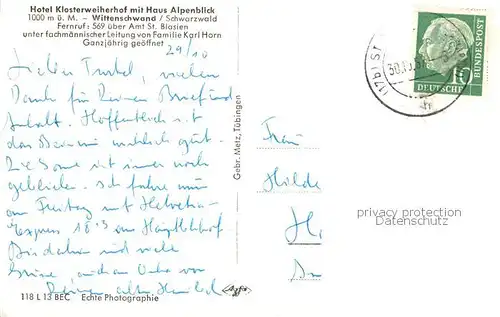 Hotel Klosterweiherhof mit Haus Alpenblick
1000 m ü. M. – Wittenschwand / Schwarzwald
Fernruf: 569 über Amt St. Blasien
unter fachmännischer Leitung von Familie Karl Horn
Ganzjährig geöffnet
29/10
vielen
Dank für Deinen Brief und
Inhalt. Hoffentlich ist
das wirklich gut.
Die Sonne ist immer noch
geblieben. Ich fahre nun
am Freitag mit Helvetia-
Express 18 13 am Hauptbahnhof
Bis dahin und viele
Grüsse, auch an von
Deine alte
118 L 13 BEC Echte Photographie
Gebr. Metz, Tübingen
(17b) ST
30.10.5
10
DEUTSCHE
BUNDESPOST
Frau
Hilde
H
privacy protection
Datenschutz